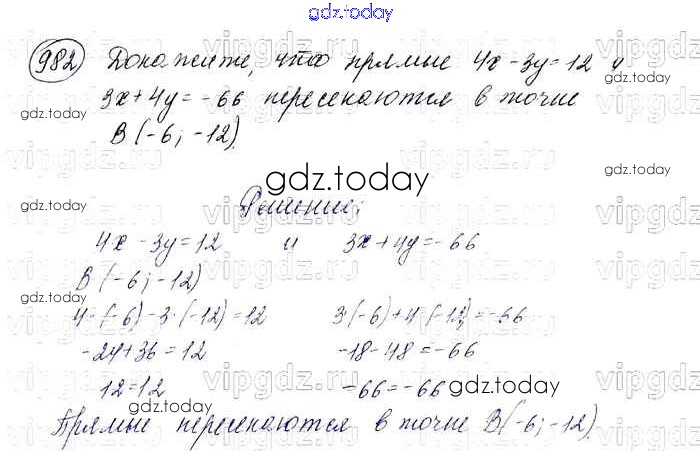 gdz.today
982 Докажите, что прямые 4x - 3y = 12 и
3x + 4y = -66 пересекаются в точке
B (-6; -12).
gdz.today
Решение:
4x - 3y = 12 и 3x + 4y = -66
B (-6; -12)
4·(-6) - 3·(-12) = 12 3·(-6) + 4·(-12) = -66
-24 + 36 = 12 -18 - 48 = -66
12 = 12 -66 = -66
Прямые пересекаются в точке B(-6; -12).
gdz.today
gdz.today
gdz.today
gdz.today
gdz.today
gdz.today
gdz.today
vipgdz.ru